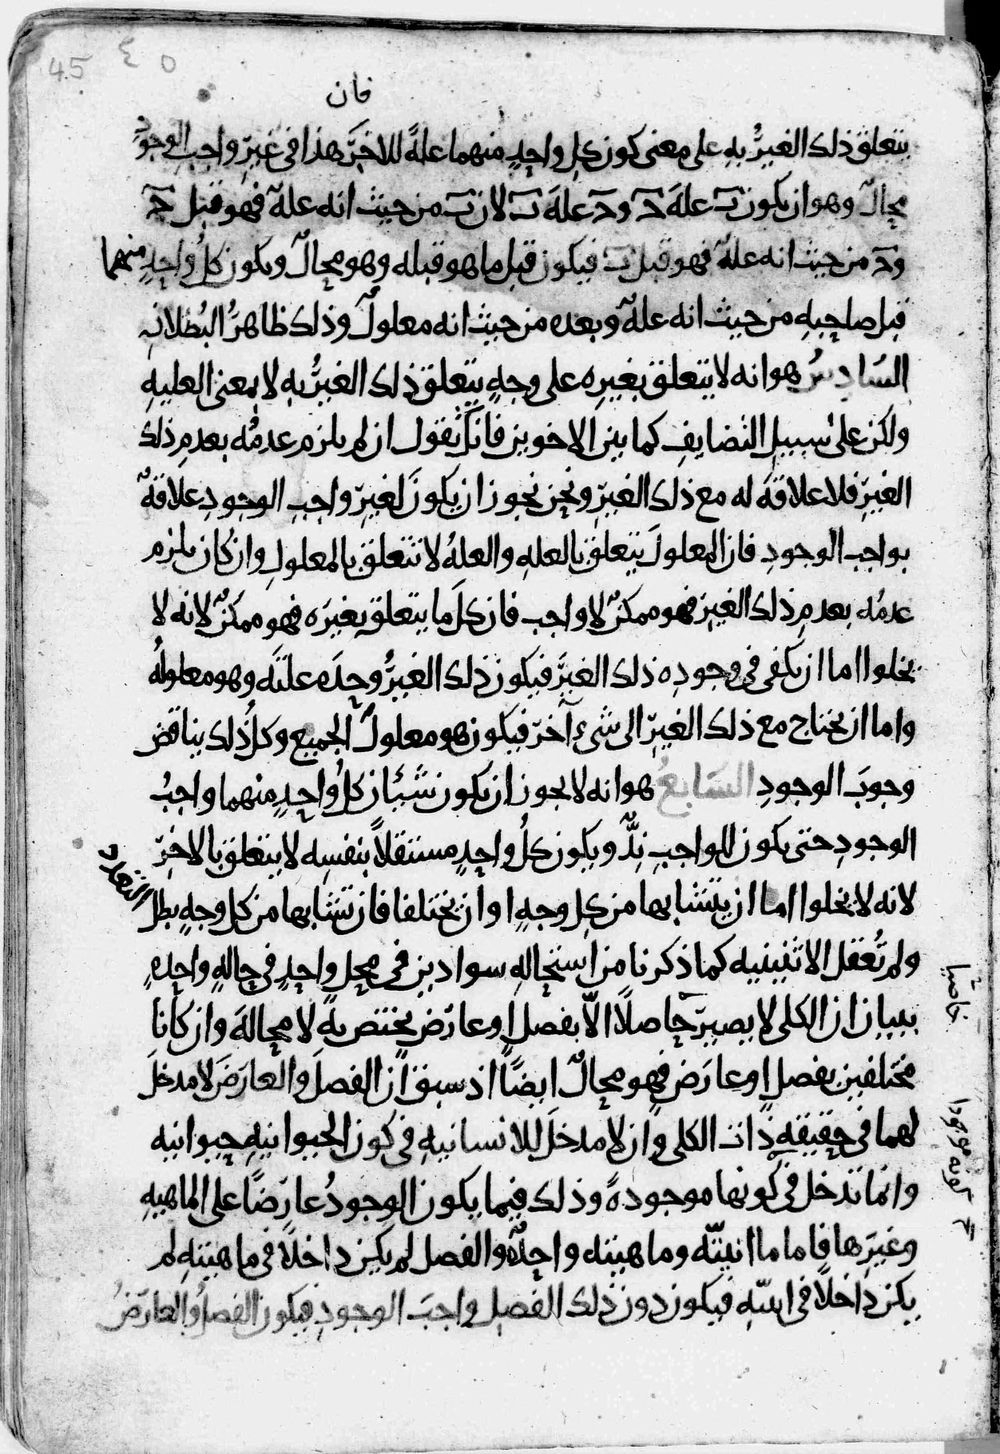 45 ٤٥
فان
يتعلق ذلك الغير به على معنى كون كل واحد منهما علة للاخر هذا في غير واجب الوجود
محال وهو ان يكون ب علة ج وج علة ب لان ب من حيث انه علة فهو قبل ج
وج من حيث انه علة فهو قبل ب فيكون قبل ما هو قبله وهو محال ويكون كل واحد منهما
قبل صاحبه من حيث انه علة وبعده من حيث انه معلول وذلك ظاهر البطلان
السادس هو انه لا يتعلق بغيره على وجه يتعلق ذلك الغير به لا بمعنى العليه
ولكن على سبيل التضايف كما بين الاخوين فانا نقول ان لم يلزم عدمه بعدم ذلك
الغير فلا علاقة له مع ذلك الغير ونحن نجوز ان يكون لغير واجب الوجود علاقة
بواجب الوجود فان المعلول يتعلق بالعله والعلة لا تتعلق بالمعلول وان كان يلزم
عدمه بعدم ذلك الغير فهو ممكن لا واجب فان كل ما يتعلق بغيره فهو ممكن لانه لا
يخلوا اما ان يكفي في وجوده ذلك الغير فيكون ذلك الغير وحده علته وهو معلوله
واما ان يحتاج مع ذلك الغير الى شيء آخر فيكون هو معلول الجميع وكل ذلك يناقض
وجوب الوجود السابع هو انه لا يجوز ان يكون شيئان كل واحد منهما واجب
الوجود حتى يكون للواجب ند ويكون كل واحد مستقلا بنفسه لا يتعلق بالاخر
لانه لا يخلوا اما ان يتشابها من كل وجه او ان يختلفا فان تشابها من كل وجه بطل التعدد
ولم تعقل الاثنينيه كما ذكرنا من استحاله سوادين في محل واحد في حالة واحده
ببيان ان الكلي لا يصير حاصلا الا بفصل او عارض يختص به لا محالة وان كانا
مختلفين بفصل او عارض فهو محال ايضا اذ سبق ان الفصل والعارض لا مدخل
لهما في حقيقه ذات الكلي وان لا مدخل للانسانيه في كون الحيوانيه حيوانيه
وانما تدخل في كونها موجودة وذلك فيما يكون الوجود عارضا على الماهيه
وغيرها فاما ما انيته وماهيته واحدة والفصل لم يكن داخلا في ماهيته لم
يكن داخلا في انيته فيكون دون ذلك الفصل واجب الوجود فيكون الفصل والعارض
خاصيا
كونه موجودا